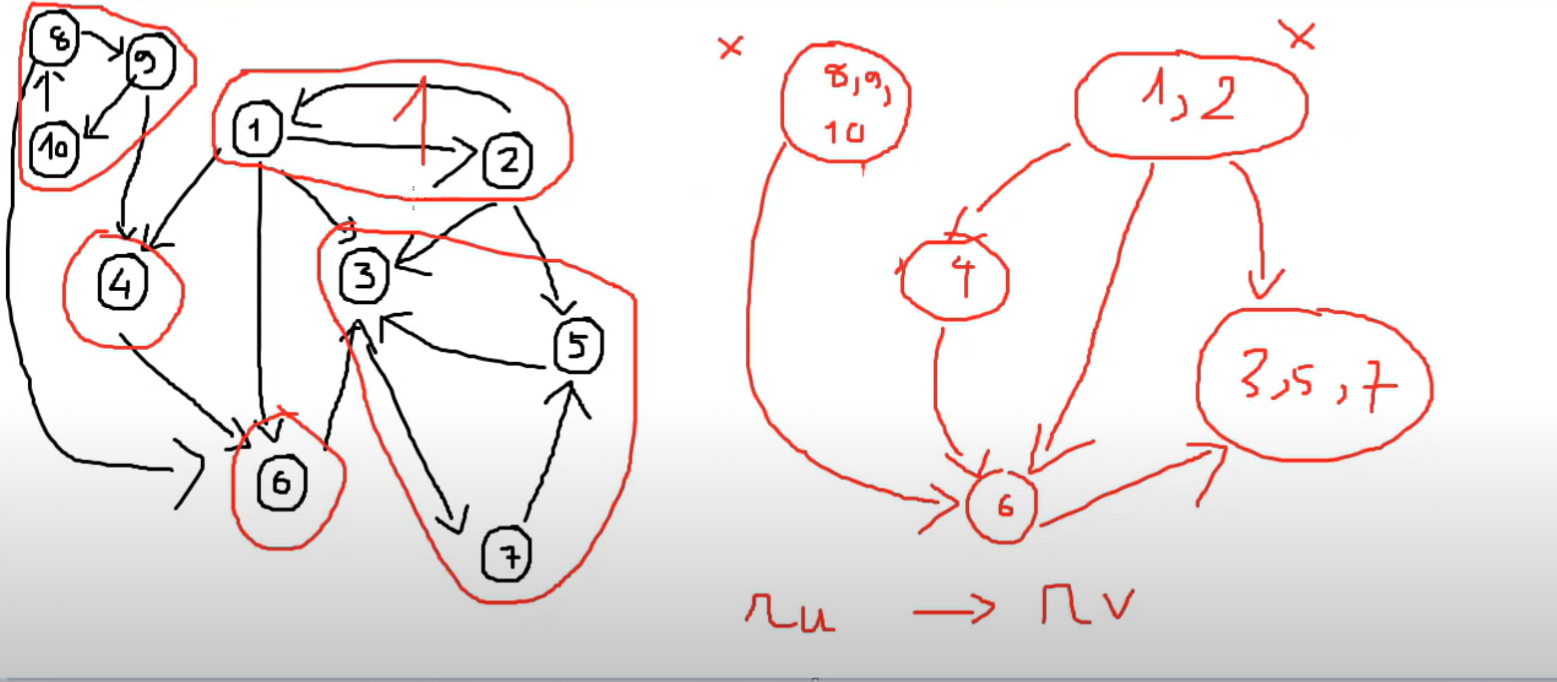 8
9
10
1
1
2
4
3
5
6
7
x
8,9,
10
x
1,2
4
3,5,7
6
ru → rv